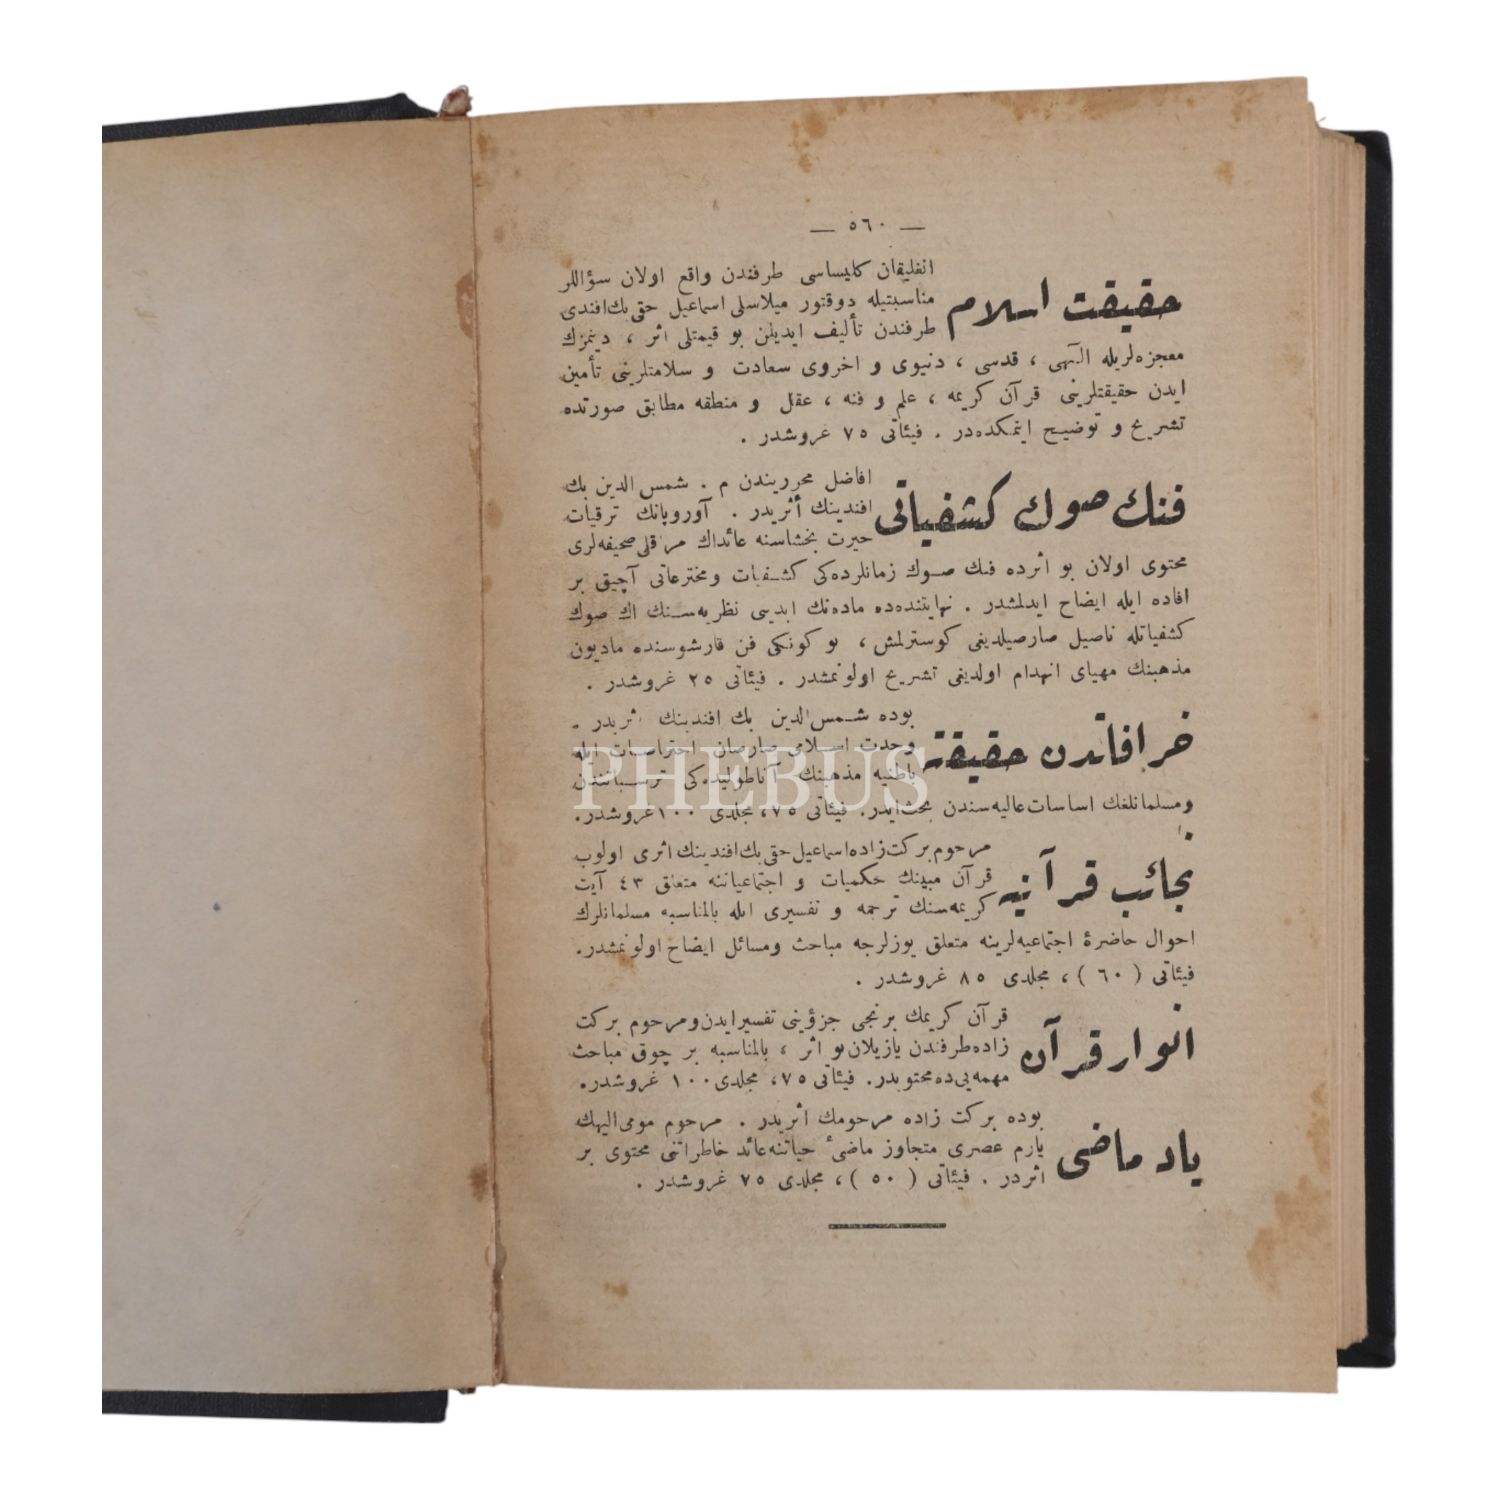 — ٥٦٠ —
حقيقت اسلام
انغليقان كليساسى طرفندن واقع اولان سؤاللر
مناسبتيله دوقتور ميلاسلى اسماعيل حقى بك افندى
طرفندن تأليف ايديلن بو قيمتلى اثر ، دينمزك
معجزه‌لريله الٓهى ، قدسى ، دنيوى و اخروى سعادت و سلامتلرينى تأمين
ايدن حقيقتلرينى قرآن كريمه ، علم و فنه ، عقل و منطقه مطابق صورتده
تشريح و توضيح ايتمكده‌در . فيئاتى ٧٥ غروشدر .
فنك صوك كشفياتى
افاضل محرريندن م . شمس الدين بك
افندينك أثريدر . آوروپانك ترقيات
حيرت بخشاسنه عائداك مراقلى صحيفه‌لرى
محتوى اولان بو اثرده فنك صوك زمانلرده‌كى كشفيات و مخترعاتى آچيق بر
افاده ايله ايضاح ايدلمشدر . نهايتنده‌ده ماده‌نك ابديسى نظريه‌سنك اك صوك
كشفياتله ناصيل صارصيلديغى كوسترلمش ، بو كونكى فن قارشوسنده ماديون
مذهبنك مهياى انهدام اولديغى تشريح اولونمشدر . فيئاتى ٢٥ غروشدر .
خرافاتدن حقيقته
بوده شمس الدين بك افندينك اثريدر .
وحدت اسلامى صارصان احتراسات ايله
باطنيه مذهبنك آناطوليده‌كى ترسباتندن
ومسلمانلغك اساسات عاليه‌سندن بحث ايدر. فيئاتى ٧٥، مجلدى ١٠٠ غروشدر.
نجائب قرآنيه
مرحوم بركت زاده اسماعيل حقى بك افندينك اثرى اولوب
قرآن مبينك حكميات و اجتماعياتنه متعلق ٤٣ آيت
كريمه‌سنك ترجمه و تفسيرى ايله بالمناسبه مسلمانلرك
احوال حاضرۀ اجتماعيه‌لرينه متعلق يوزلرجه مباحث ومسائل ايضاح اولونمشدر.
فيئاتى ( ٦٠ ) ، مجلدى ٨٥ غروشدر .
انوار قرآن
قرآن كريمك برنجى جزؤينى تفسير ايدن ومرحوم بركت
زاده طرفندن يازيلان بو اثر ، بالمناسبه بر چوق مباحث
مهمه‌يى ده محتويدر. فيئاتى ٧٥، مجلدى ١٠٠ غروشدر.
ياد ماضى
بوده بركت زاده مرحومك اثريدر . مرحوم مومى اليهك
يارم عصرى متجاوز ماضئ حياتنه عائد خاطراتنى محتوى بر
اثردر . فيئاتى ( ٥٠ ) ، مجلدى ٧٥ غروشدر .
PHEBUS